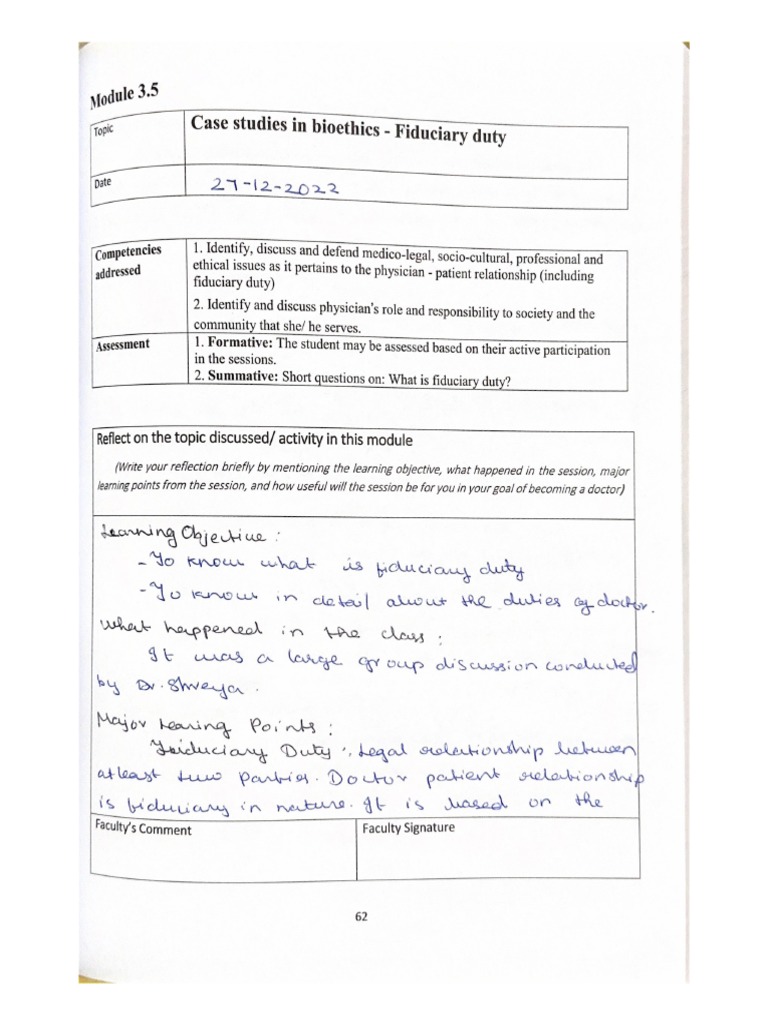 Module 3.5
Topic
Case studies in bioethics - Fiduciary duty
Date
27-12-2022
Competencies addressed
1. Identify, discuss and defend medico-legal, socio-cultural, professional and
ethical issues as it pertains to the physician - patient relationship (including
fiduciary duty)
2. Identify and discuss physician's role and responsibility to society and the
community that she/ he serves.
Assessment
1. Formative: The student may be assessed based on their active participation
in the sessions.
2. Summative: Short questions on: What is fiduciary duty?
Reflect on the topic discussed/ activity in this module
(Write your reflection briefly by mentioning the learning objective, what happened in the session, major
learning points from the session, and how useful will the session be for you in your goal of becoming a doctor)
Learning Objective :
- To know what is fiduciary duty
- To know in detail about the duties of doctor.
What happened in the class :
It was a large group discussion conducted
by Dr. Shreya.
Major Learing Points :
Fiduciary Duty : Legal relationship between
atleast two parties. Doctor patient relationship
is fiduciary in nature. It is based on the
Faculty's Comment
Faculty Signature
62